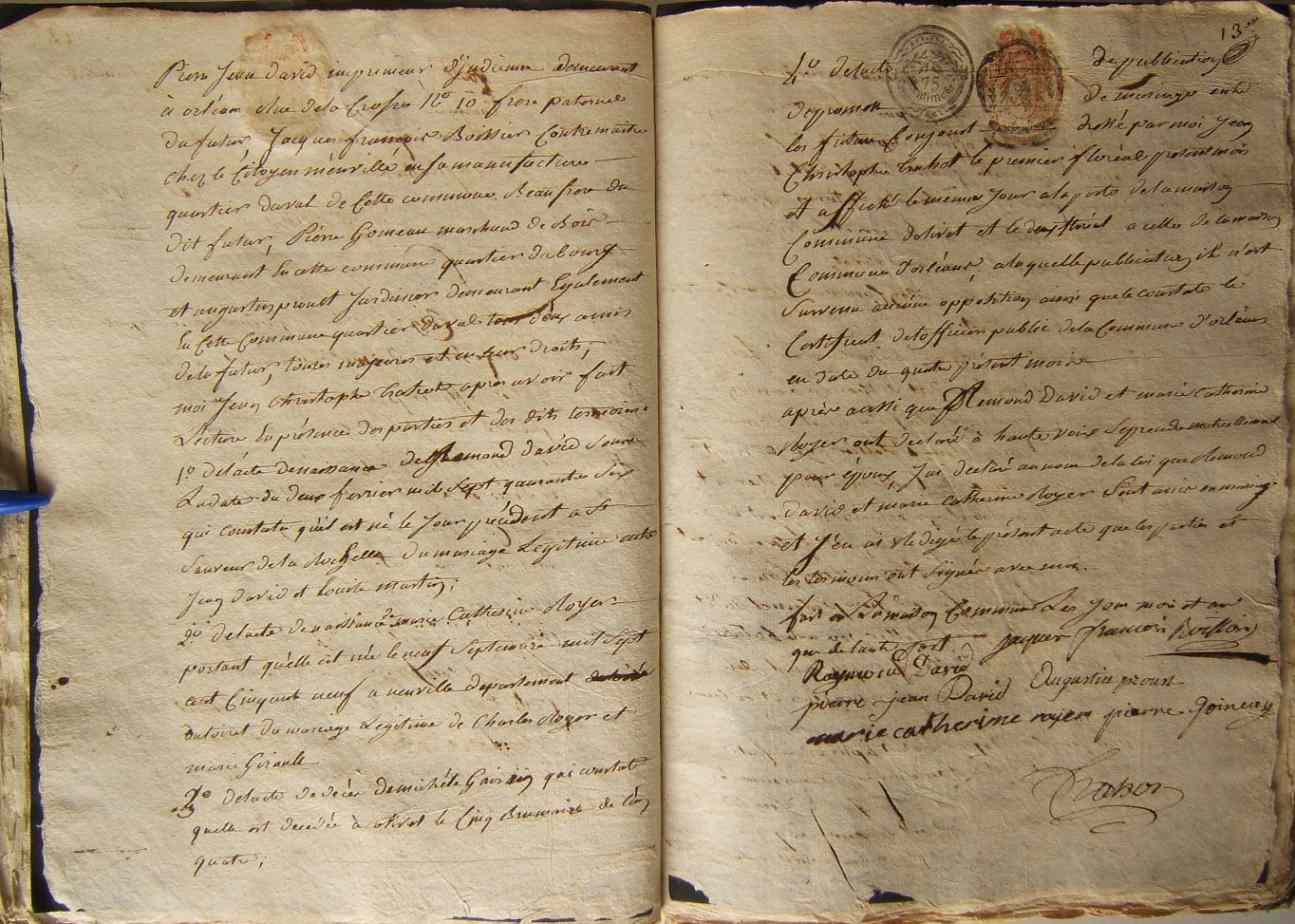 Pierre Jean david imprimeur d'indienne demeurant
à orléans Rue de la Crosse No 10 frere paternel
du futur, Jacques françois Boissier Contremaitre
chez le Citoyen mainville en sa manufacture
quartier daval de Cette commune Beaufrere du
dit futur, Pierre Goineau marchand de Bois
demeurant En cette commune quartier du bourg
et augustin proust Jardinier demeurant Egalement
En Cette Commune quartier daval tous deux amis
de la futur, toutes majeures et en leur droits,
moi Jean christophe trahot apres avoir fait
Lecture En présence des parties et des dits temoins
1o de lacte de naissance de Remond david Sous
La date du deux fevrier mil Sept quarante Six
qui constate quil est né le Jour précédent a St
Sauveur de la Rochelle du mariage Légitime entre
Jean David et Louise Martin;
2o de lacte de naissance de marie Catherine Royer
portant quelle est née le neuf Septembre mil Sept
cent Cinquante neuf a neuville departement
du loiret du mariage Légitime de Charles Royer et
marie Girault
3o de lacte de décès de michele qui constate
quelle est decedée à olivet le Cinq Brumaire de l'an
quatre;
13
4o de lacte de publication
de promesse de mariage entre
les futurs Conjoint dressé par moi Jean
Christophe trahot le premier floréal présent mois
et affiché le meme Jour a la porte de la maison
Commune dolivet et le deux floréal a celle de la maison
Commune d'orléans, a laquelle publication il n'est
Survenu aucune opposition ainsi que le constate le
Certificat de lofficier public de la Commune d'orléans
en date du quatre présent mois
après aussi que Remond David et marie Catherine
Royer ont declaré à haute voix Se prendre mutuellement
pour époux, J'ai declaré au nom de la loi que Remond
David et marie Catherine Royer Sont unis en mariage
et J'en ai rédigé le présent acte que les parties et
les temoins ont Signée avec moi.
fait en La maison Commune Les Jour mois et an
que de lautre part jaques francois Boissier
Raymond David
pierre jean David Augustin proust
marie catherine royer pierre Goineau
Trahot